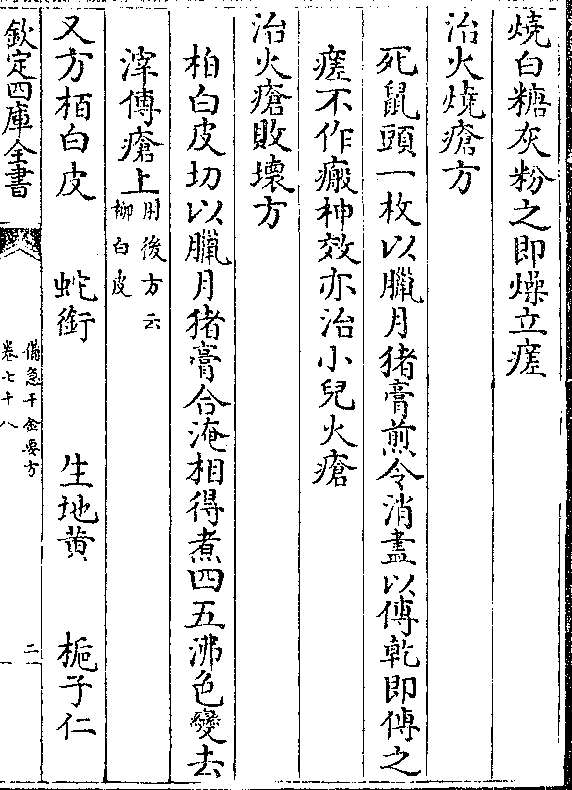 燒白糖灰粉之即燥立瘥
治火燒瘡方
死鼠頭一枚以臘月猪膏煎令消盡以傅乾即傅之
瘥不作瘢神效亦治小兒火瘡
治火瘡敗壞方
柏白皮切以臘月猪膏合淹相得煮四五沸色變去
滓傅瘡上肘後方云
柳白皮
又方栢白皮 蛇銜 生地黄 梔子仁
欽定四庫全書
備急千金要方
卷七十八
二